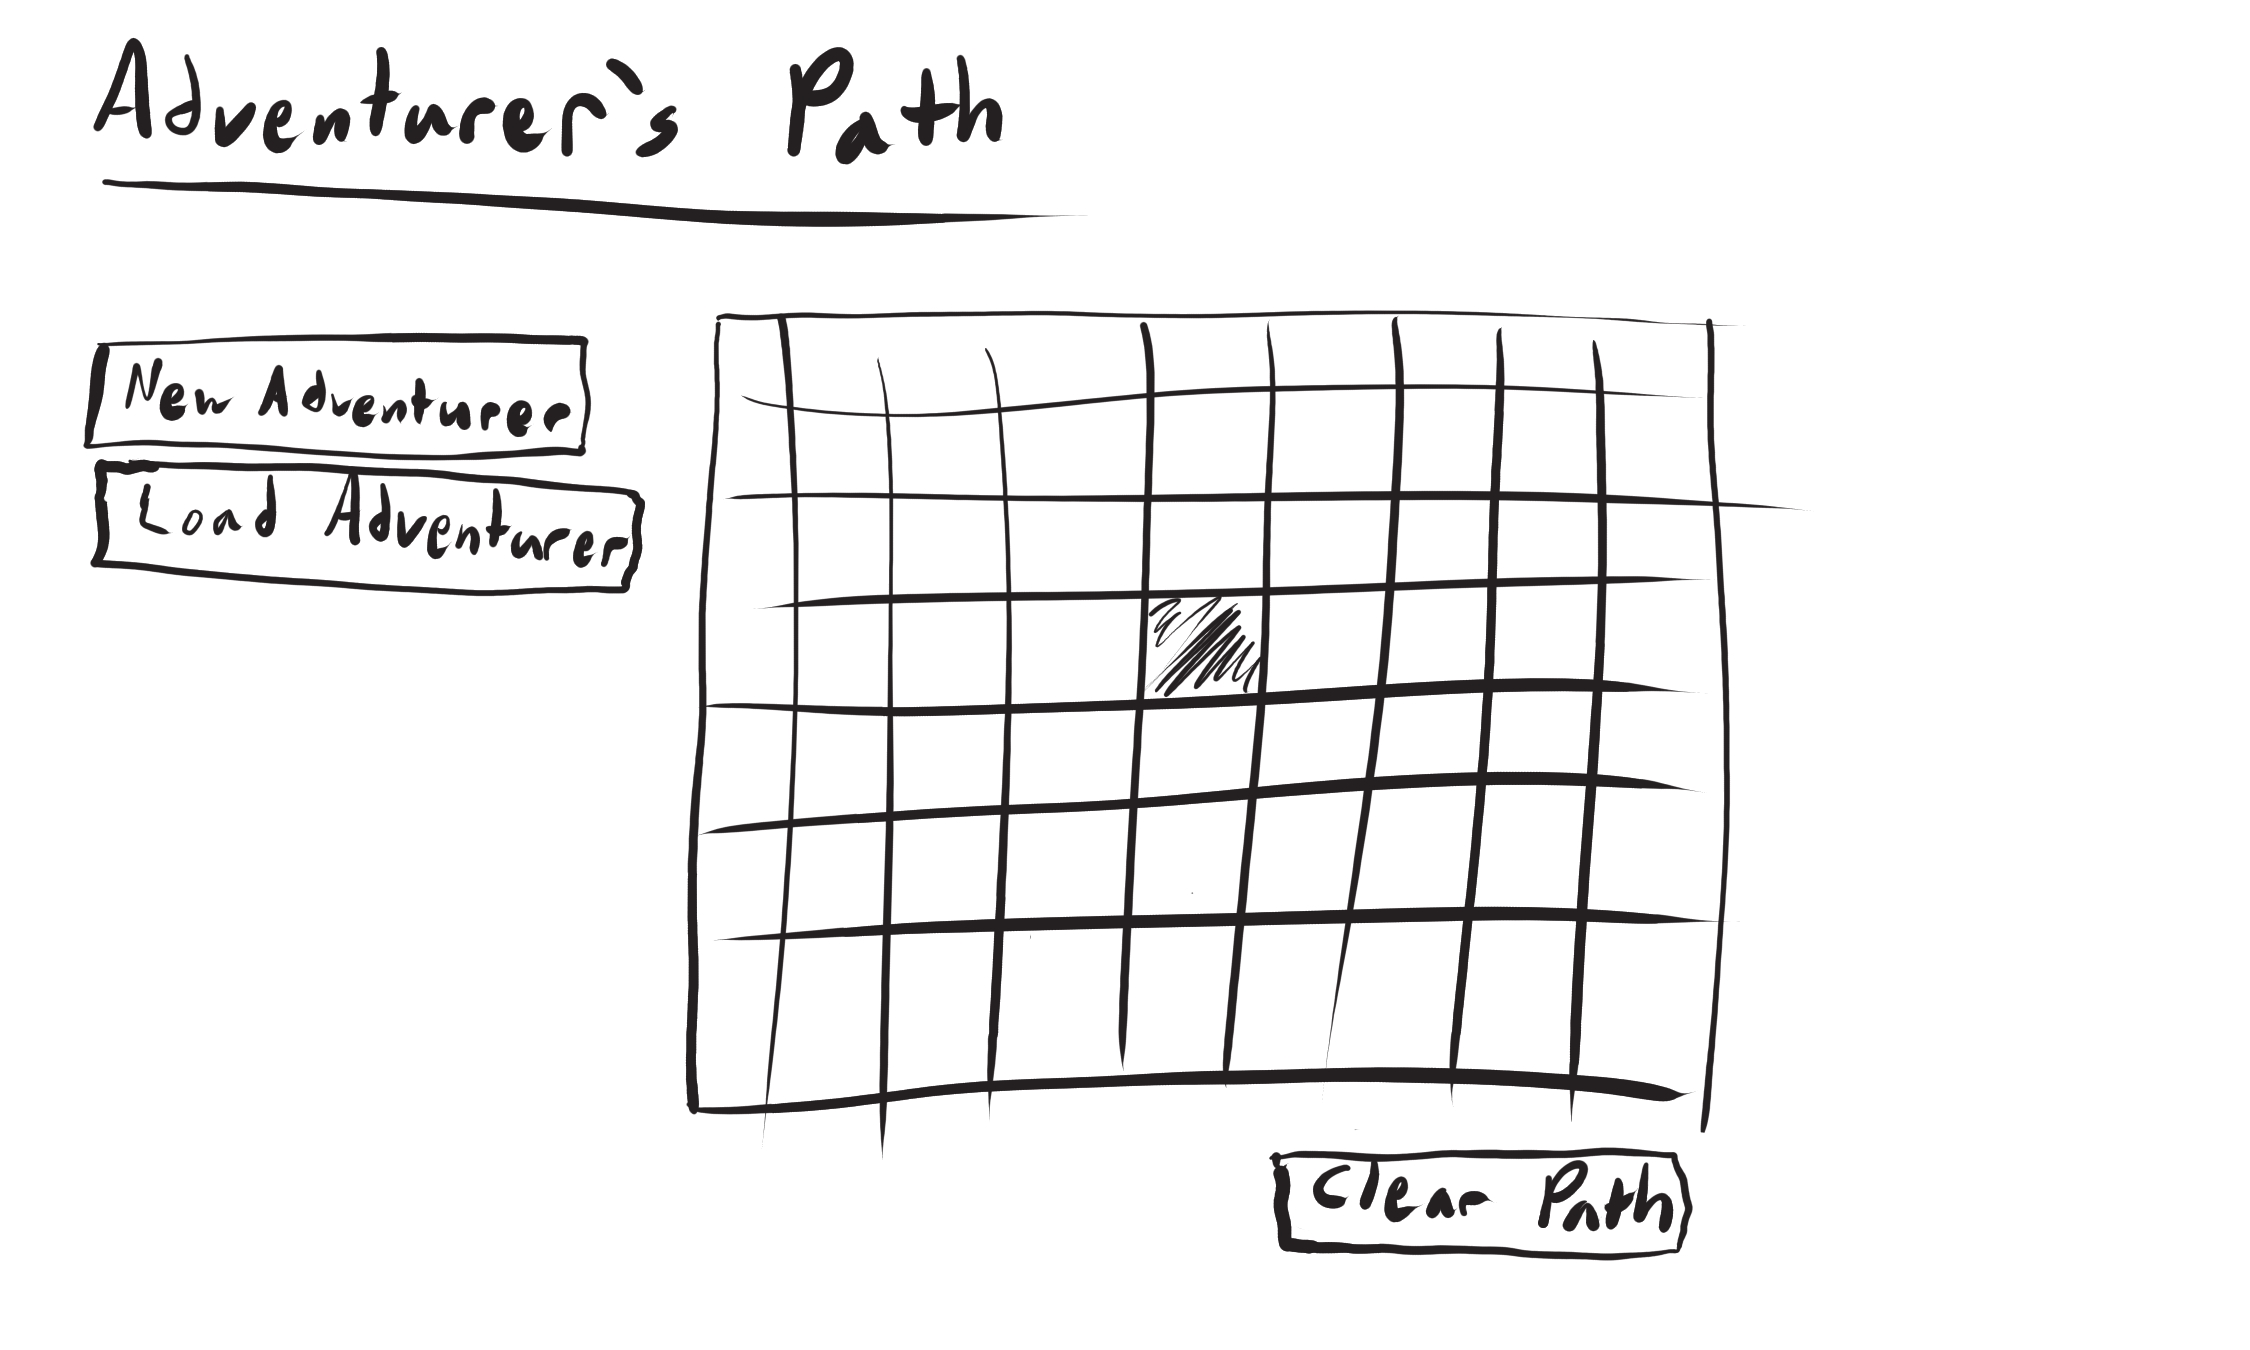 Adventurer's Path
New Adventurer
Load Adventurer
Clear Path